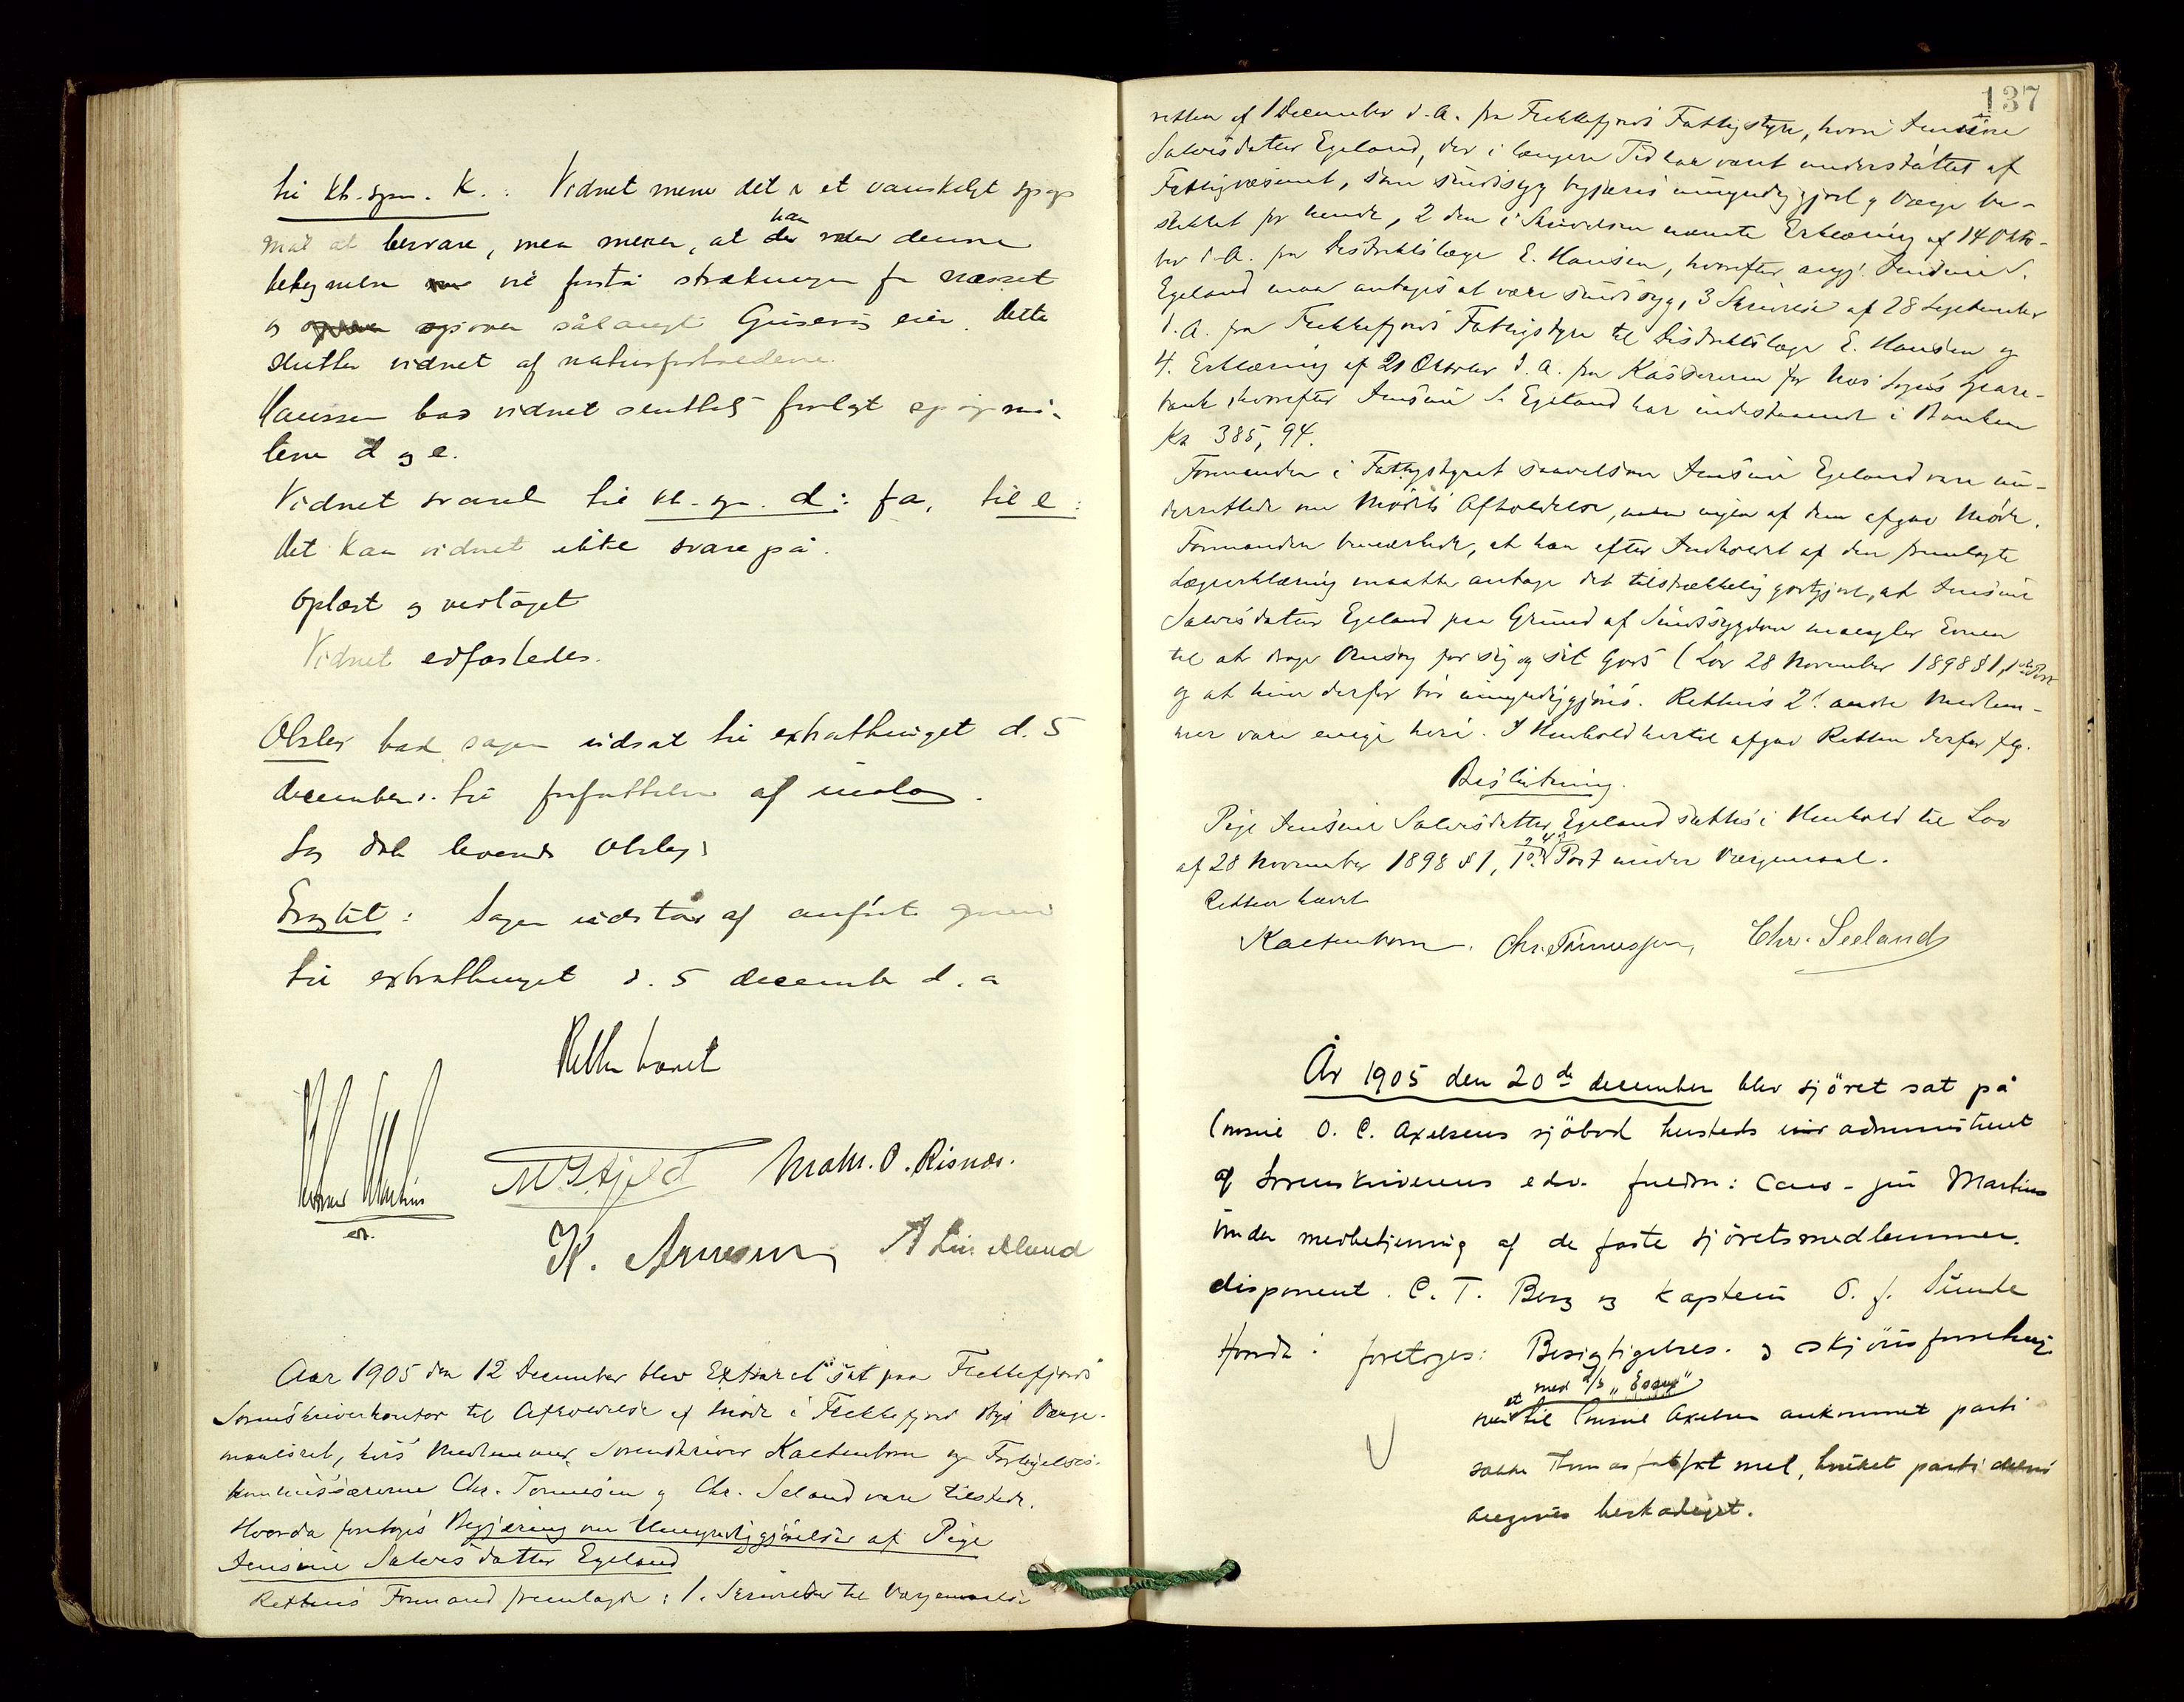 til kt.spm. K.: Vidnet mener det er et vanskeligt spørgs
mål at besvare, men mener, at han under denne
betegnelse vil forstå strækningen fra næsset
og opover sålangt Guseris eier. Dette
slutter vidnet af naturforholdene.
Hanssen bad vidnet sluttelig forelagt spørgsmå-
lene d og e.
Vidnet svared til kt. sp. d: ja, til e:
Det kan vidnet ikke svare på.
Oplæst og vedtaget
Vidnet edfæstedes.
Obslev bad sagen udsat til extrathinget d. 5
december d. til forfattelse af indlæg.
Sag dok leverede Obslev
Eragtet: Sagen udstår af anførte grund
til extrathinget d. 5 december d. a
Retten hævet
Martins
ed.
M Stjeld Math. O. Risnæs.
K. Arnesen A Lindland
Aar 1905 den 12 December blev Extraret sat paa Flekkefjords
Sorenskriverkontor til Afholdelse af Møde i Flekkefjord Bys Værge-
maalsret, hvis Medlemmer, Sorenskriver Kaltenborn og Forligelses-
kommissærerne Chr. Tønnesen og Chr. Seland vare tilstede.
Hvorda foretoges Begjæring om Umyndiggjørelse af Pige
Jensine Salvesdatter Egeland
Rettens Formand fremlagde: 1. Skrivelse til Værgemaals-
137
retten af 1 December d. A. fra Flekkefjords Fattigstyre, hvori Jensine
Salvesdatter Egeland, der i længere Tid har været understøttet af
Fattigvæsenet, som sindssyg begjæres umyndiggjort og Værge be-
skikket for hende, 2 den i Skrivelsen nævnte Erklæring af 14 Okto-
ber d. A. fra Distriktslæge E. Hansen, hvorefter angj. Jensine S.
Egeland maa antages at være sindssyg, 3 Skrivelse af 28 September
d. A. fra Flekkefjords Fattigstyre til Distriktslæge E. Hansen og
4. Erklæring af 21 Oktober d. A. fra Kassereren for Næs Sogns Spare-
bank, hvorefter Jensine S. Egeland har indestaaende i Banken
Kr 385,94.
Formanden i Fattigstyret saavelsom Jensine Egeland vare un-
derrettede om Mødets Afholdelse, men ingen af dem afgav Møde.
Formanden bemærkede, at han efter Indholdet af den fremlagte
Lægeerklæring maatte antage det tilstrækkelig godtgjort, at Jensine
Salvesdatter Egeland paa Grund af Sindssygdom mangler Evnen
til at drage Omsorg for sig og sit Gods (Lov 28 November 1898 § 1, 1ste Post
og at hun derfor bør umyndiggjøres. Rettens 2de andre Medlem-
mer vare enige heri. I Henhold hertil afgav Retten derfor flg.
Beslutning.
Pige Jensine Salvesdatter Egeland sættes i Henhold til Lov
af 28 November 1898 § 1, 1ste Post under Værgemaal.
Retten hævet
Kaltenborn. Chr. Tønnessen, Chr. Seeland
År 1905 den 20de december blev sjöret sat på
Consul O. C. Axelsens sjöbod hersteds administreret
af Sorenskriverens edsv. fuldm: Cand-jur Martins
under medbetjening af de faste sjöretsmedlemmer.
disponent C. T. Berg og kaptein O. J. Sunde
Hvorda: foretoges: Besigtigelses- og skjönsforretning
med d/s "Essex"
over et til Consul Axelsen ankommet parti
sække mel, hvilket parti
angives beskadiget.